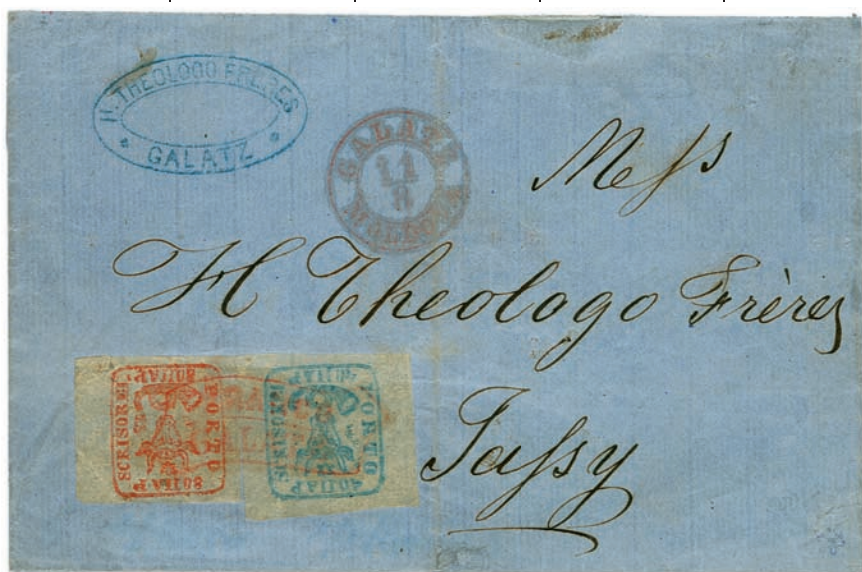 H. THEOLOGO FRERES
* GALATZ *
GALATZ
11
8
MOLDOVA
Mess
H Theologo Frères
Jassy
PORTO
SCRISOREI
80 ПАР
80 ПАР
PORTO
SCRISOREI
40 ПАР
40 ПАР